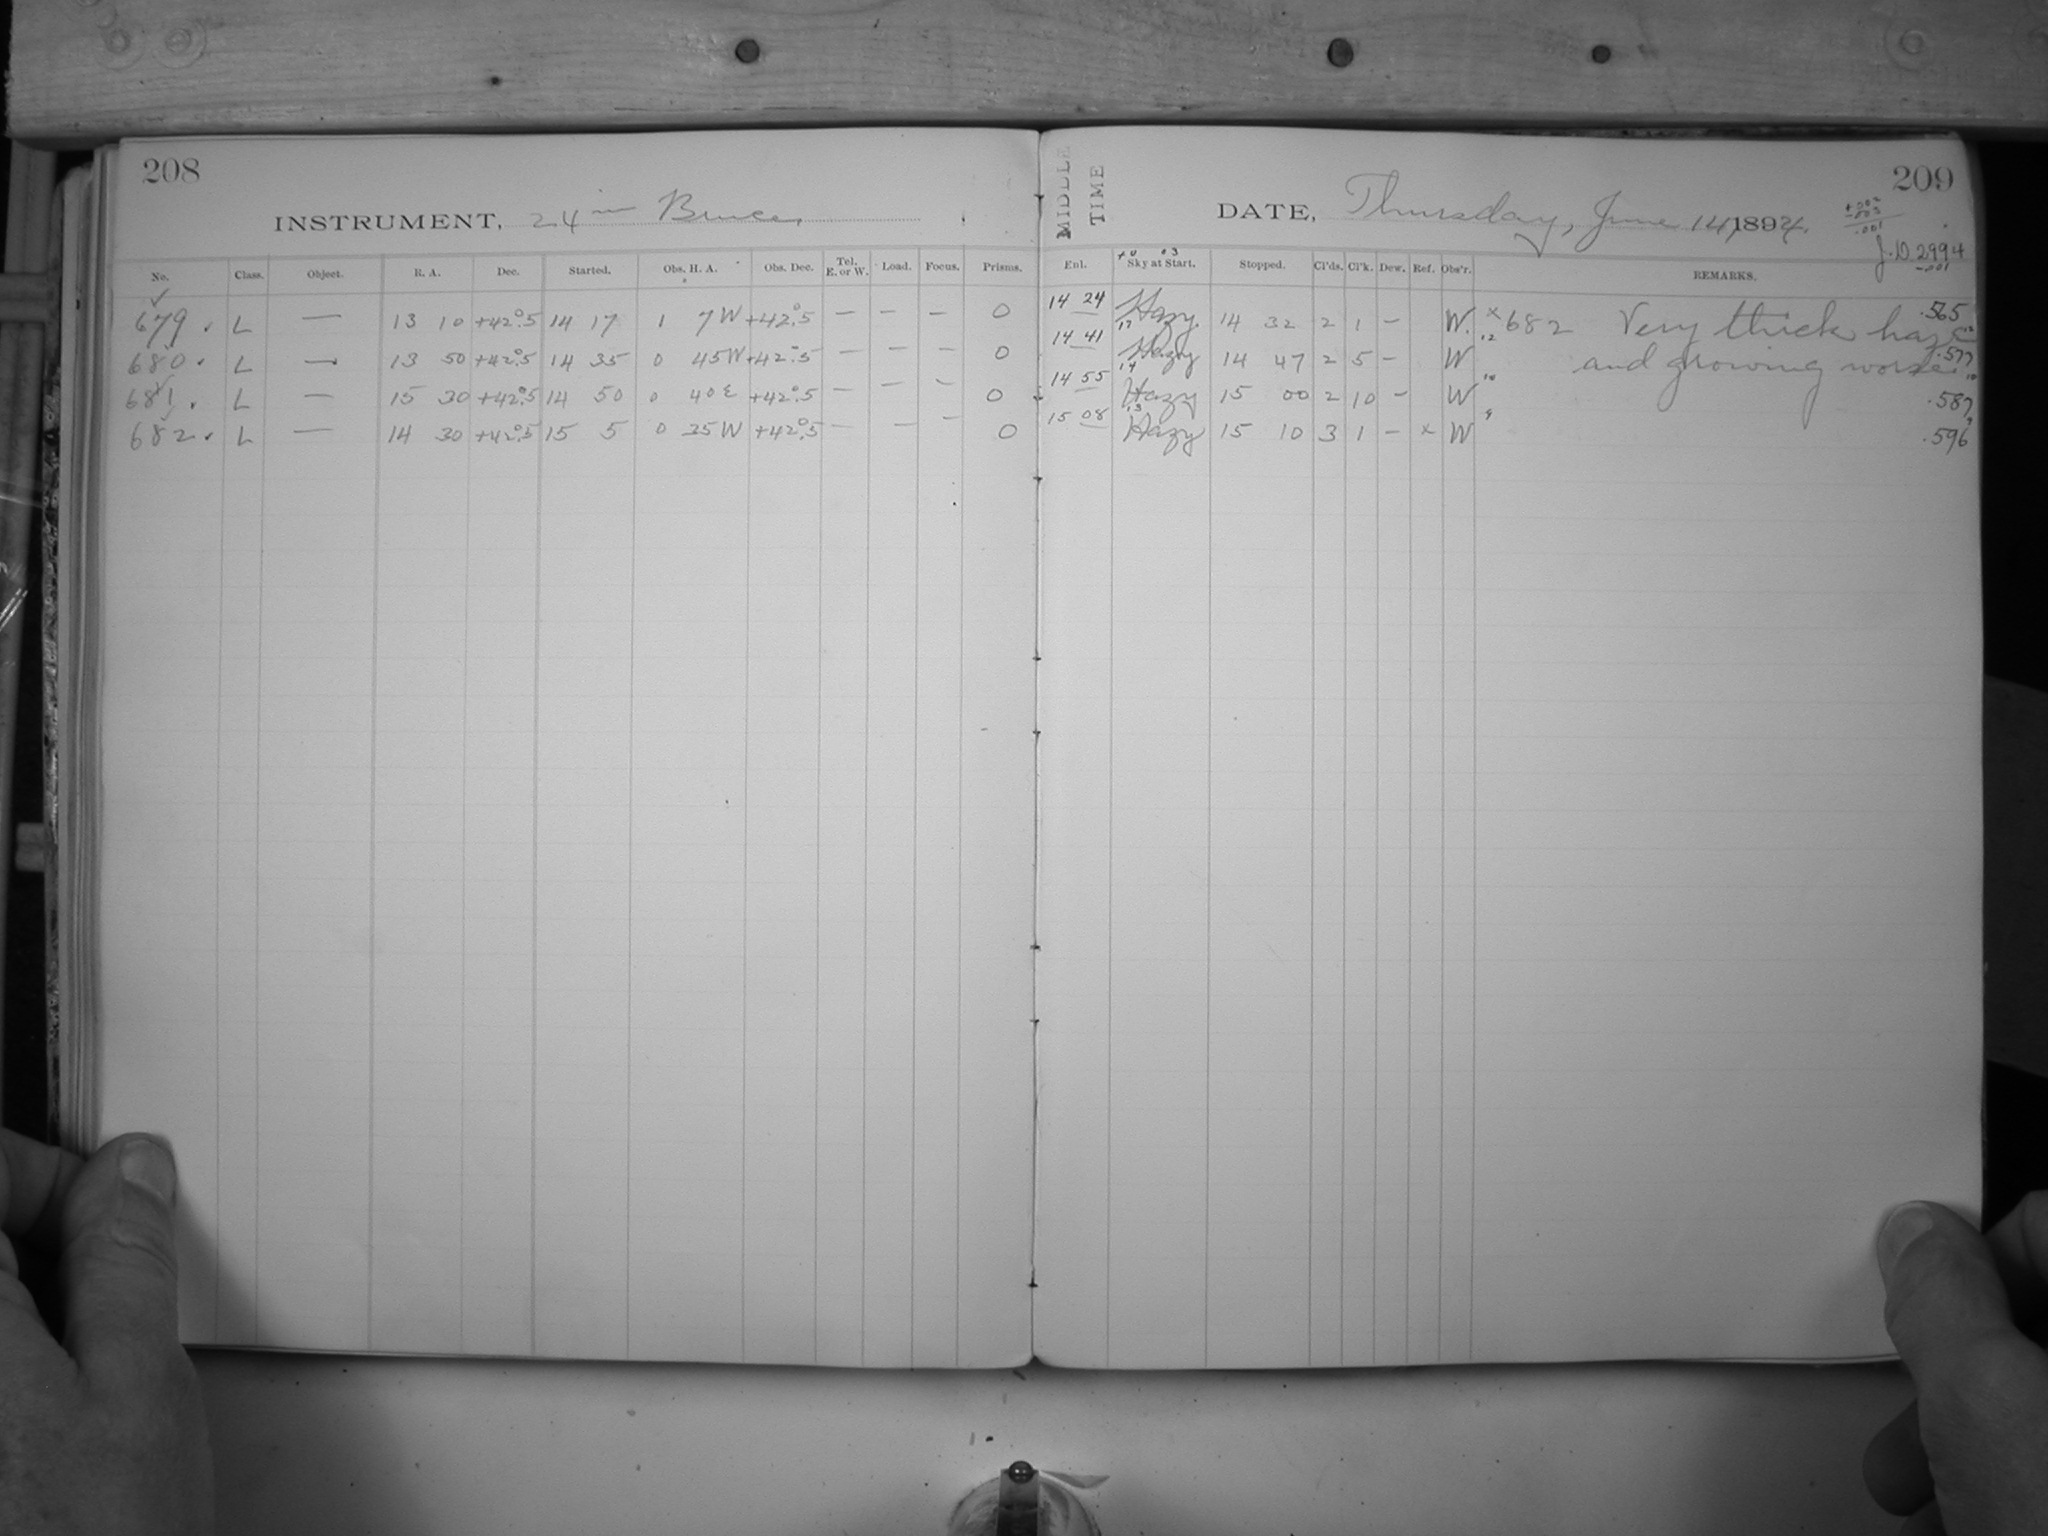 208
INSTRUMENT, 24 in Bruce.
No. Class. Object. R. A. Dec. Started. Obs. H. A. Obs. Dec. Tel. E. or W. Load. Focus. Prisms.
679. L — 13 10 +42°.5 14 17 1 7W +42°.5 — — — O
680. L — 13 50 +42°.5 14 35 0 45W +42°.5 — — — O
681. L — 15 30 +42°.5 14 50 0 40E +42°.5 — — — O
682. L — 14 30 +42°.5 15 5 0 35W +42°.5 — — — O
MIDDLE
TIME
209
DATE, Thursday, June 14, 1894.
+.002
-.003
-.001
J.D. 2994
-.001
Enl. Sky at Start. Stopped. Cl'ds. Cl'k. Dew. Ref. Obs'r. REMARKS.
14 24 Hazy 14 32 2 1 — W. x682 Very thick haze .565
14 41 Hazy 14 47 2 5 — W and growing worse. .577
14 55 Hazy 15 00 2 10 — W .587
15 08 Hazy 15 10 3 1 — x W .596